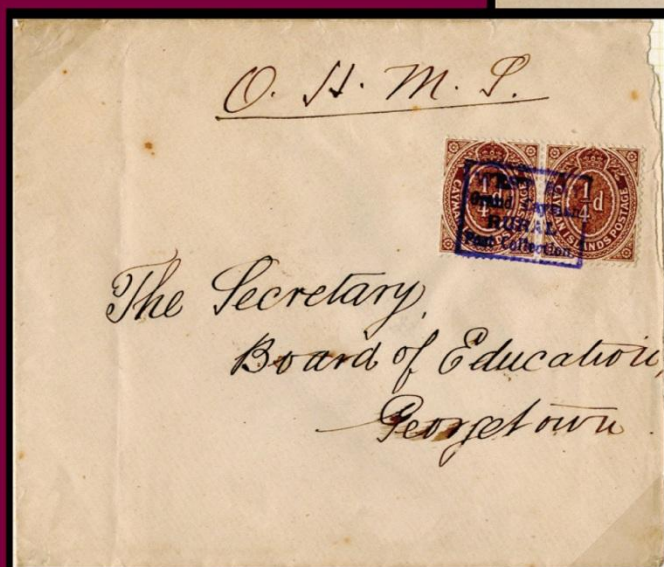 O. H. M. S.
CAYMAN ISLANDS POSTAGE
1/4 d
CAYMAN ISLANDS POSTAGE
1/4 d
Grand Cayman
RURAL
Post Collection.
The Secretary,
Board of Education,
Georgetown